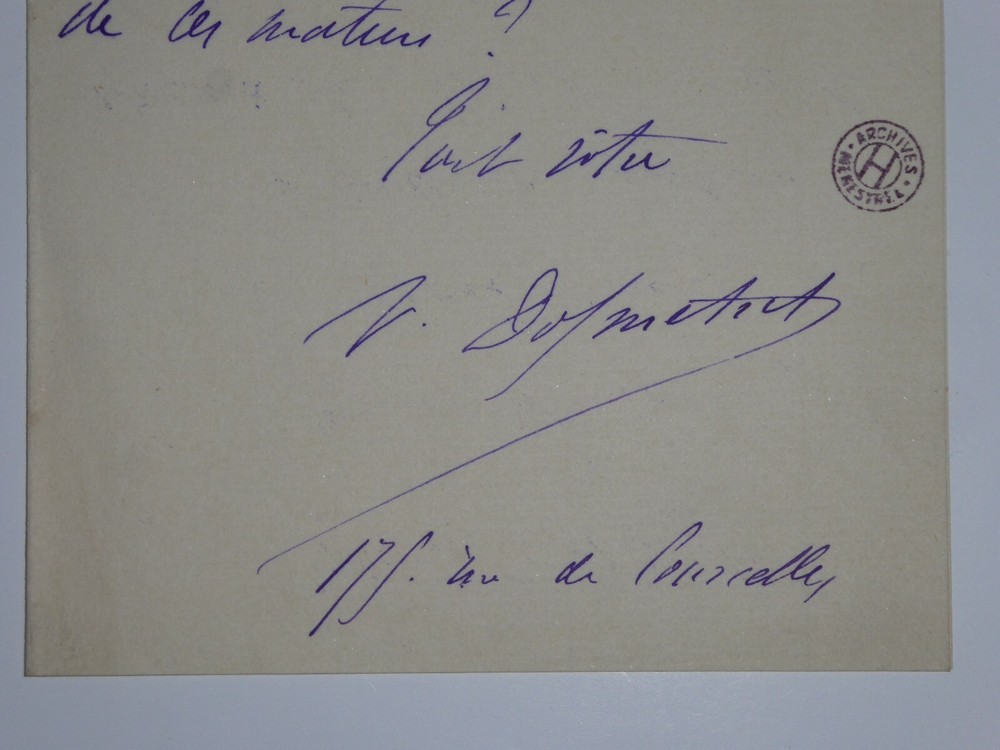 de ces matins ?
Tout vôtre
ARCHIVES MENESTREL
H
V. Dolmetsch
175. rue de Courcelles